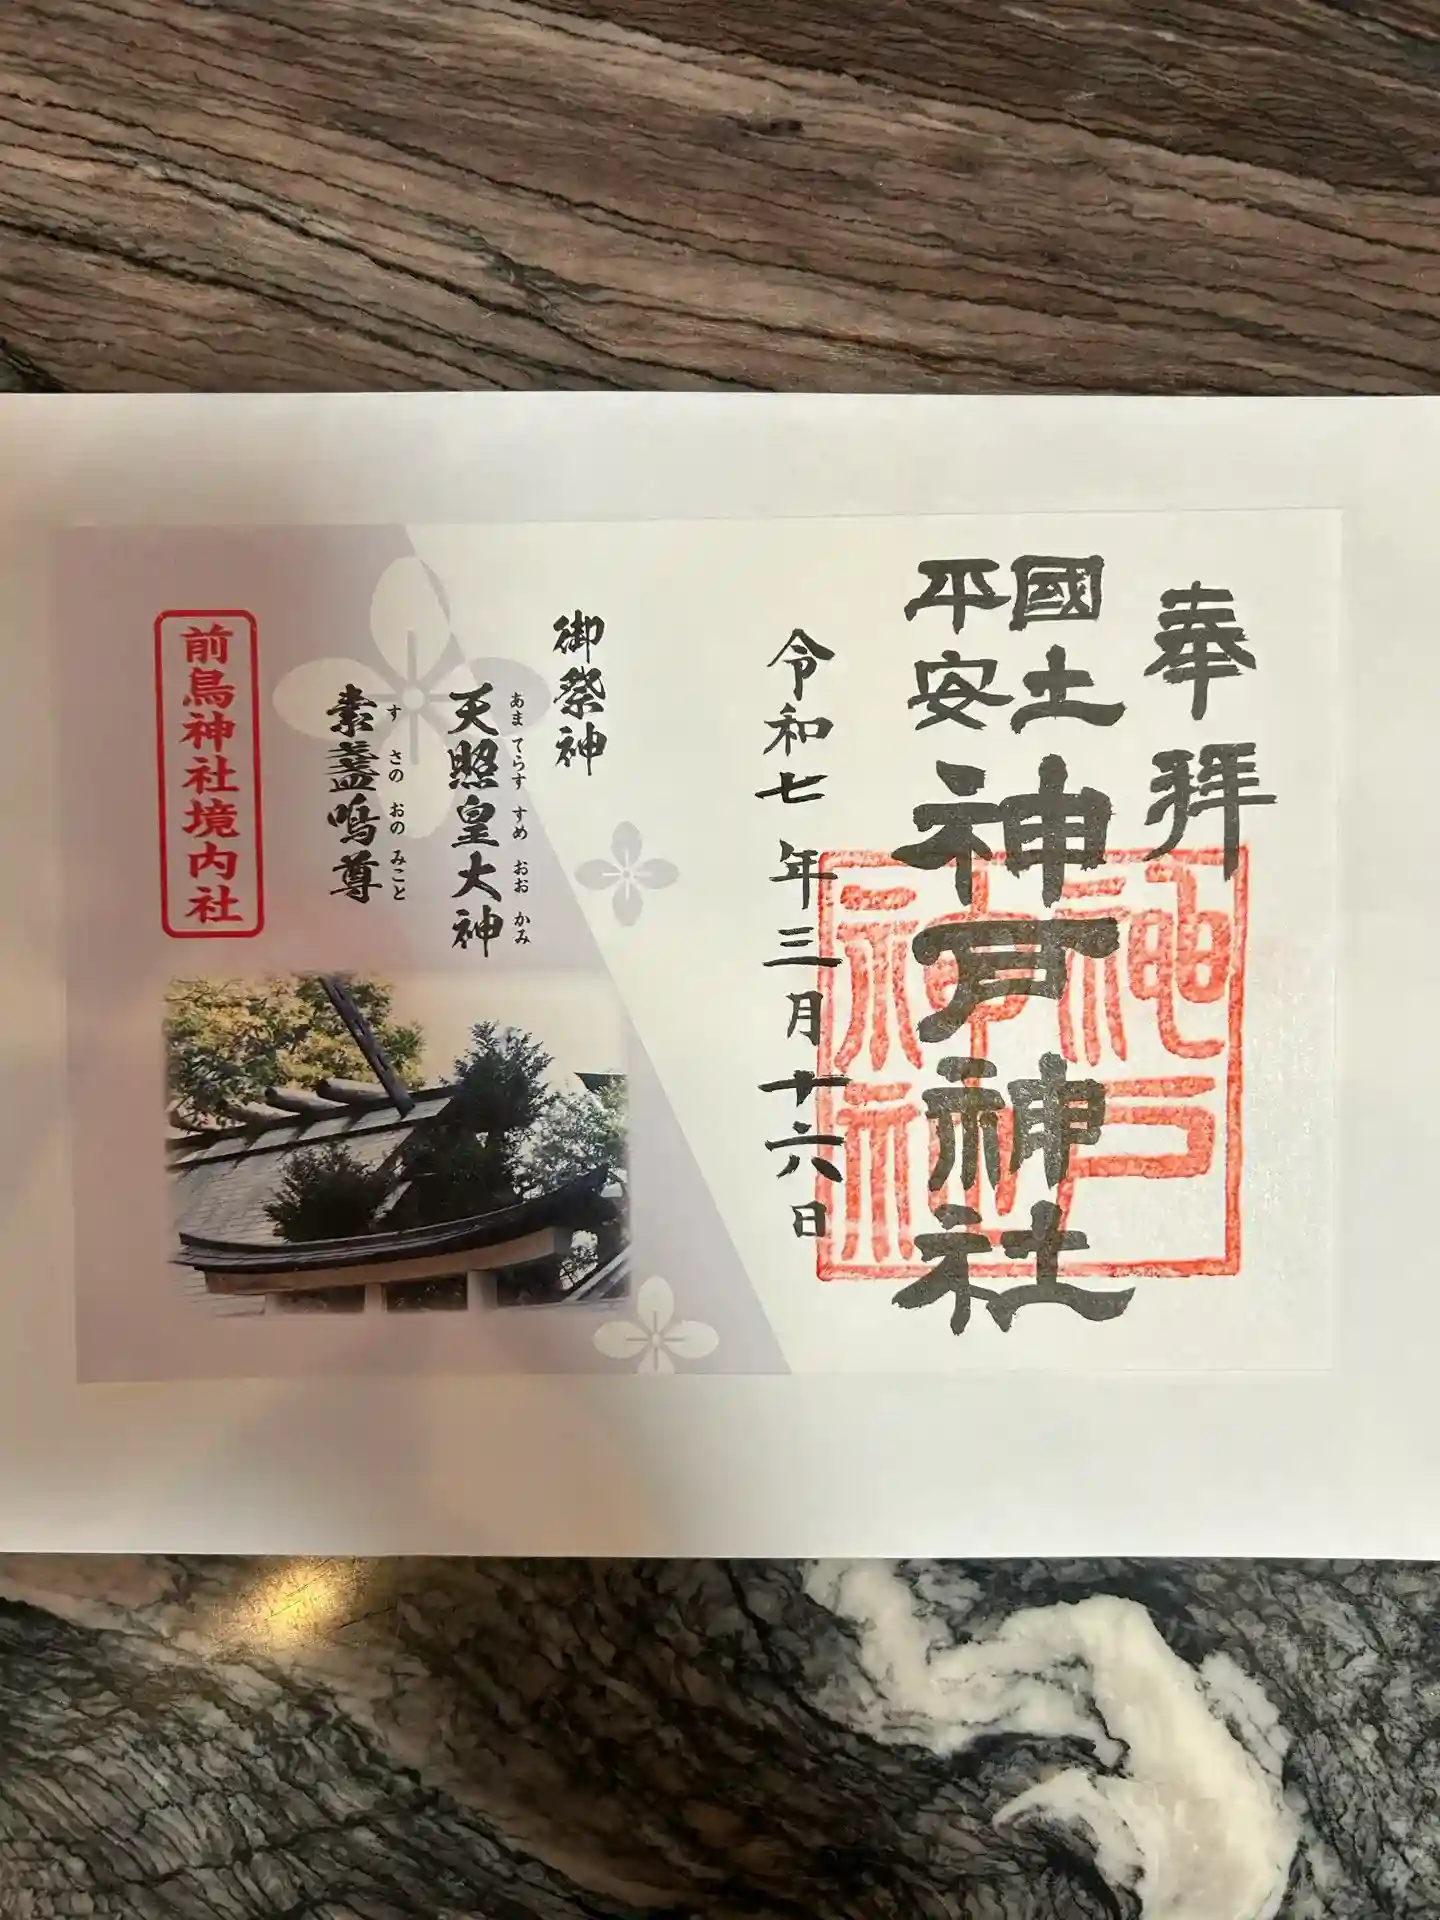 奉拝
國土
平安
神戸神社
神戸
神社
令和七年三月十六日
御祭神
天照皇大神
あまてらすすめおおかみ
素盞鳴尊
すさのおのみこと
前鳥神社境内社